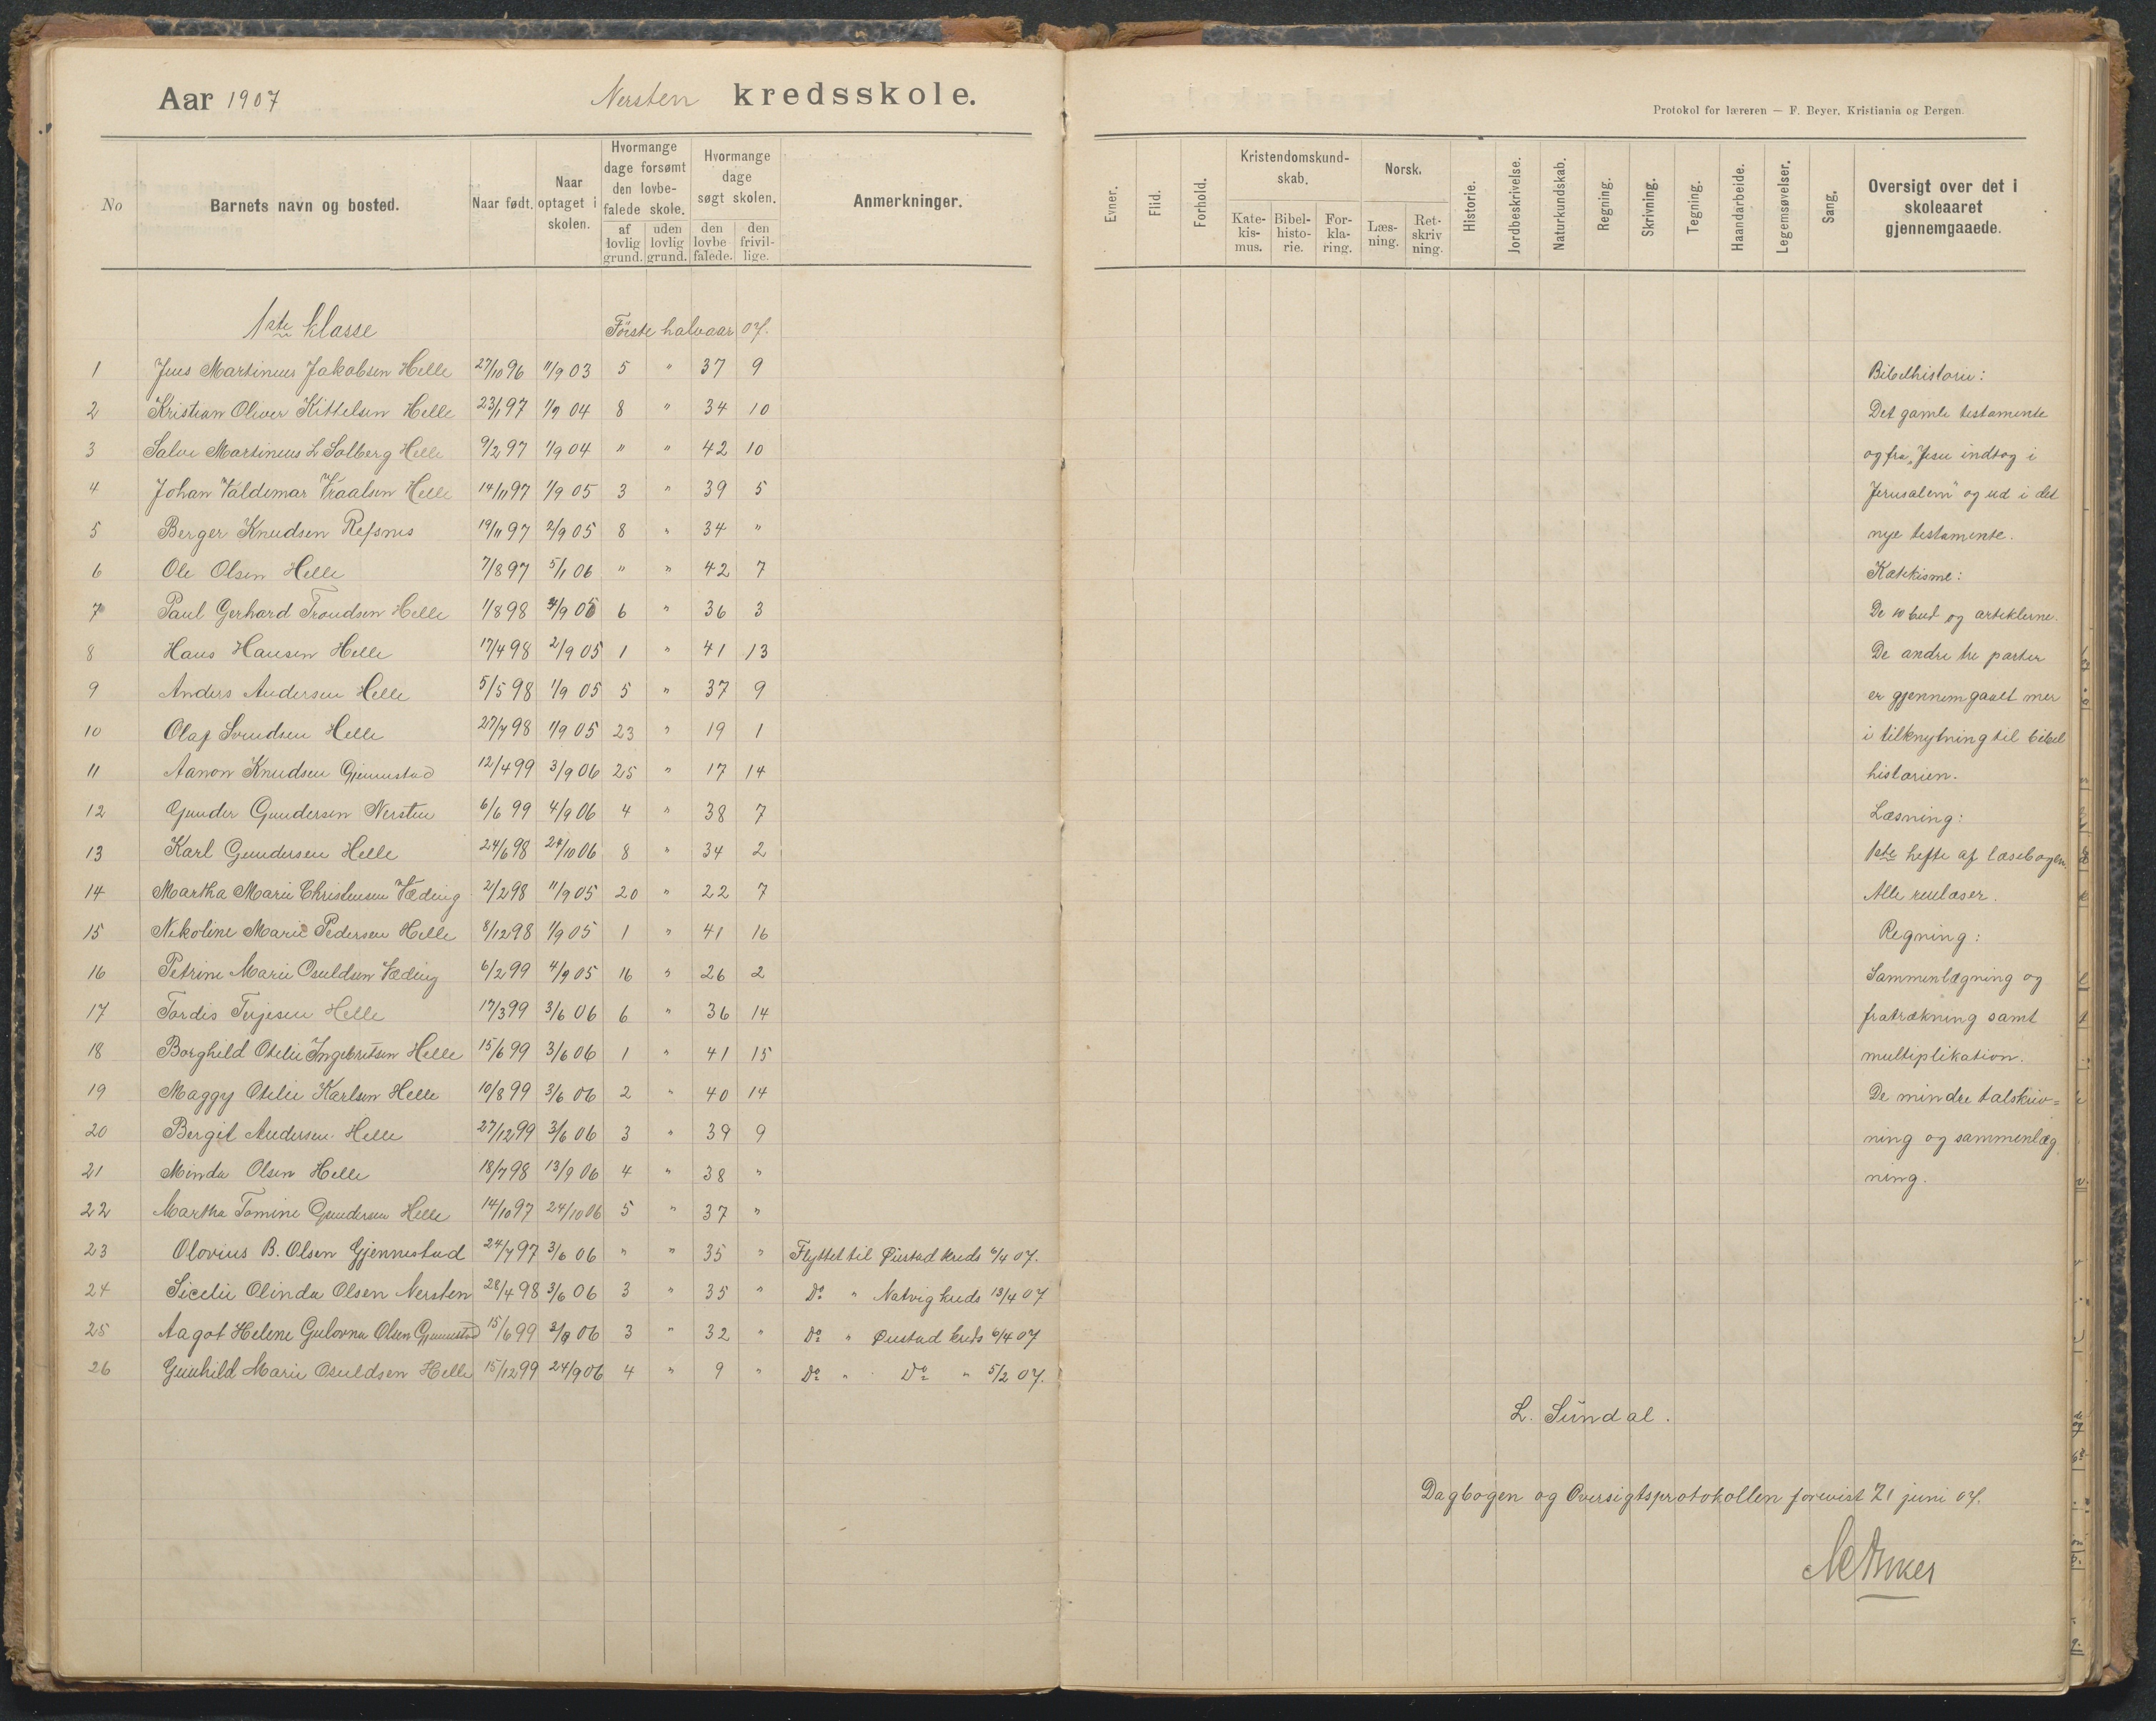 Aar 1907 Nersten kredsskole.
No
Barnets navn og bosted.
Naar født.
Naar optaget i skolen.
Hvormange dage forsømt den lovbefalede skole.
af lovlig grund.
uden lovlig grund.
Hvormange dage søgt skolen.
den lovbefalede.
den frivillige.
Anmerkninger.
1ste klasse Første halvaar 07.
1 Jens Martinius Jakobsen Helle 27/10 96 11/9 03 5 " 37 9
2 Kristian Oliver Kittelsen Helle 23/1 97 1/9 04 8 " 34 10
3 Salve Martinius L Solberg Helle 9/2 97 1/9 04 " " 42 10
4 Johan Valdemar Vraalsen Helle 14/11 97 1/9 05 3 " 39 5
5 Berger Knudsen Refsnes 19/11 97 2/9 05 8 " 34 "
6 Ole Olsen Helle 7/8 97 5/1 06 " " 42 7
7 Paul Gerhard Trondsen Helle 1/8 98 /9 05 6 " 36 3
8 Hans Hansen Helle 17/4 98 2/9 05 1 " 41 13
9 Anders Andersen Helle 5/5 98 1/9 05 5 " 37 9
10 Olaf Svendsen Helle 27/7 98 1/9 05 23 " 19 1
11 Aanon Knudsen Gjennestad 12/4 99 3/9 06 25 " 17 14
12 Gunder Gundersen Nersten 6/6 99 4/9 06 4 " 38 7
13 Karl Gundersen Helle 24/6 98 24/10 06 8 " 34 2
14 Martha Marie Christensen Væding 2/2 98 11/9 05 20 " 22 7
15 Nikoline Marie Pedersen Helle 8/12 98 1/9 05 1 " 41 16
16 Petrine Marie Osuldsen Væding 6/2 99 4/9 05 16 " 26 2
17 Tordis Terjesen Helle 17/3 99 3/6 06 6 " 36 14
18 Borghild Otelie Ingebretsen Helle 15/6 99 3/6 06 1 " 41 15
19 Maggy Otelie Karlsen Helle 10/8 99 3/6 06 2 " 40 14
20 Bergit Andersen Helle 27/12 99 3/6 06 3 " 39 9
21 Minda Olsen Helle 18/7 98 13/9 06 4 " 38 "
22 Martha Tomine Gundersen Helle 14/10 97 24/10 06 5 " 37 "
23 Olovius B. Olsen Gjennestad 24/7 97 3/6 06 " " 35 " Flyttet til Øiestad kreds 6/4 07.
24 Sicelie Olinda Olsen Nersten 28/4 98 3/6 06 3 " 35 " Do " Natvig kreds 13/4 07
25 Aagot Helene Gulovna Olsen Gjennestad 15/6 99 06 3 " 32 " Do " Øiestad kreds 6/4 07
26 Gunhild Marie Osuldsen Helle 15/12 99 24/9 06 4 " 9 " Do " Do " 5/2 07.
Protokol for læreren — F. Beyer, Kristiania og Bergen.
Evner.
Flid.
Forhold.
Kristendomskundskab.
Katekismus.
Bibelhistorie.
Forklaring.
Norsk.
Læsning.
Retskrivning.
Historie.
Jordbeskrivelse.
Naturkundskab.
Regning.
Skrivning.
Tegning.
Haandarbeide.
Legemsøvelser.
Sang.
Oversigt over det i skoleaaret gjennemgaaede.
Bibelhistorie:
Det gamle testamente
og fra „Jesu indtog i
Jerusalem" og ud i det
nye testamente.
Katekisme:
De 10 bud og artiklerne.
De andre tre parter
er gjennemgaaet mer
i tilknytning til bibel
historien.
Læsning:
1ste hefte af læsebogen.
Alle renlæser.
Regning:
Sammenlægning og
fratrækning samt
multiplikation.
De mindre talskriv=
ning og sammenlæg
ning.
L. Sundal.
Dagbogen og Oversigtsprotokollen forevist 21 juni 07.